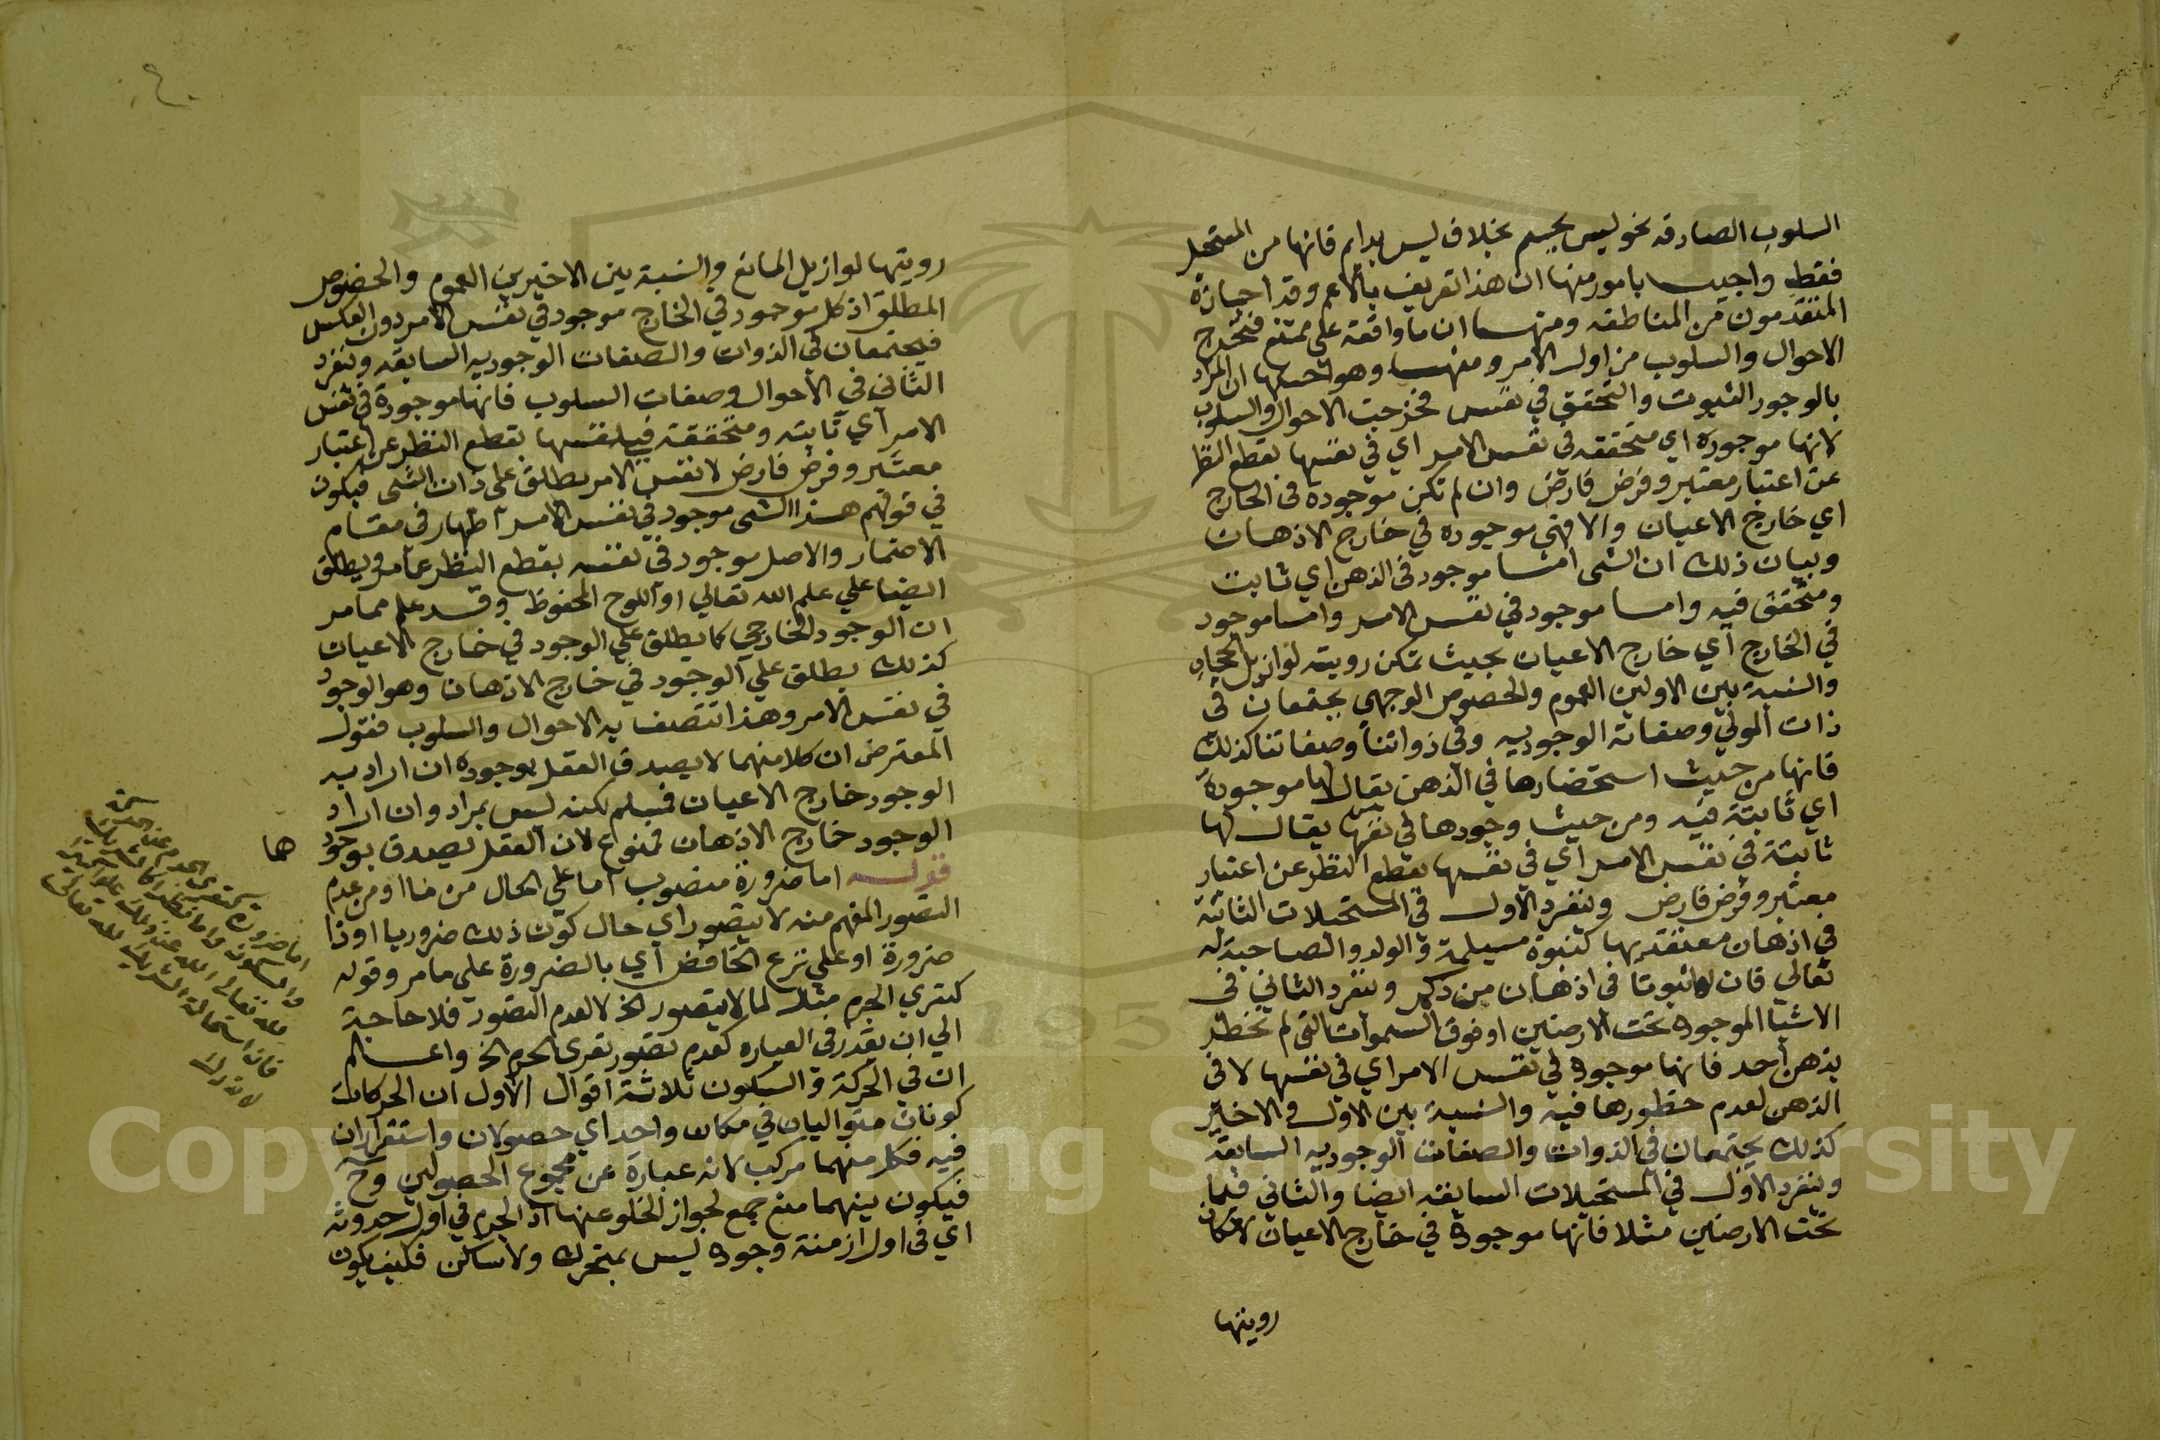 السلوب الصادقه نحو ليس بجسم بخلاف ليس بدايم فانها من المستحيل
فقط واجيب بامور منها ان هذا تعريف بالاعم وقد اجازه
المتقدمون من المناطقه ومنها ان ما واقعة على ممتنع فتخرج
الاحوال والسلوب من اول الامر ومنها وهو احسنها ان المراد
بالوجود الثبوت والتحقق في نفس فخرجت الاحوال والسلوب
لانها موجوده اي متحققه في نفس الامر اي في نفسها بقطع النظر
عن اعتبار معتبر وفرض فارض وان لم تكن موجوده في الخارج
اي خارج الاعيان والا فهي موجوده في خارج الاذهان
وبيان ذلك ان الشي اما موجود في الذهن اي ثابت
ومتحقق فيه واما موجود في نفس الامر واما موجود
في الخارج اي خارج الاعيان بحيث تمكن رويته لو ازيل الحجاب
والنسبة بين الاولين العموم والخصوص الوجهي يجتمعان في
ذات المولي وصفاته الوجوديه وفي ذواتنا وصفاتنا كذلك
فانها من حيث استحضارها في الذهن يقال لها موجودة
اي ثابتة فيه ومن حيث وجودها في نفسها يقال لها
ثابتة في نفس الامر اي في نفسها بقطع النظر عن اعتبار
معتبر وفرض فارض وينفرد الاول في المستحيلات الثابتة
في اذهان معتقديها كنبوة مسيلمة والولد والصاحبة له
تعالي فان لها ثبوتا في اذهان من ذكر وينفرد الثاني في
الاشيا الموجوده تحت الارضين او فوق السموات التي لم تخطر
بذهن احد فانها موجودة في نفس الامر اي في نفسها لا في
الذهن لعدم خطورها فيه والنسبة بين الاول والاخير
كذلك يجتمعان في الذوات والصفات الوجوديه السابقة
وينفرد الاول في المستحيلات السابقه ايضا والثاني فيما
تحت الارضين مثلا فانها موجودة في خارج الاعيان لامكان
رويتها
رويتها لو ازيل المانع والنسبة بين الاخيرين العموم والخصوص
المطلق اذ كل موجود في الخارج موجود في نفس الامر دون العكس
فيجتمعان في الذوات والصفات الوجوديه السابقه وينفرد
الثاني في الاحوال وصفات السلوب فانها موجودة في نفس
الامر اي ثابته ومتحققة في نفسها بقطع النظر عن اعتبار
معتبر وفرض فارض لا نفس الامر يطلق على ذات الشي فيكون
في قولهم هذا الشي موجود في نفس الامر اظهار في مقام
الاضمار والاصل موجود في نفسه بقطع النظر عما مر ويطلق
ايضا علي علم الله تعالي او اللوح المحفوظ وقد علم مما مر
ان الوجود الخارجي كما يطلق علي الوجود في خارج الاعيان
كذلك يطلق علي الوجود في خارج الاذهان وهو الوجود
في نفس الامر وهذا تتصف به الاحوال والسلوب فقول
المعترض ان كلا منهما لا يصدق العقل بوجوده ان اراد به
الوجود خارج الاعيان فمسلم لكنه ليس بمراد وان اراد
الوجود خارج الاذهان فممنوع لان العقل يصدق بوجود
هما
قوله اما ضرورة منصوب اما علي الحال من ما او من عدم
التصور المفهم منه لا يتصور اي حال كون ذلك ضروريا او ذا
ضرورة او علي نزع الخافض اي بالضرورة علي ما مر وقوله
كتعري الجرم مثلا لما لا يتصور الخ لا لعدم التصور فلا حاجة
الي ان يقدر في العباره كعدم تصور تعري الجرم الخ واعلم
ان في الحركة والسكون ثلاثة اقوال الاول ان الحركات
كونان متواليان في مكان واحد اي حصولان واستقراران
فيه فكل منهما مركب لانه عبارة عن مجموع الحصولين وح
فيكون بينهما منع جمع لجواز الخلو عنها اذ الجرم في اول حدوثه
اي في اول ازمنة وجوده ليس بمتحرك ولا ساكن فكيف يكون